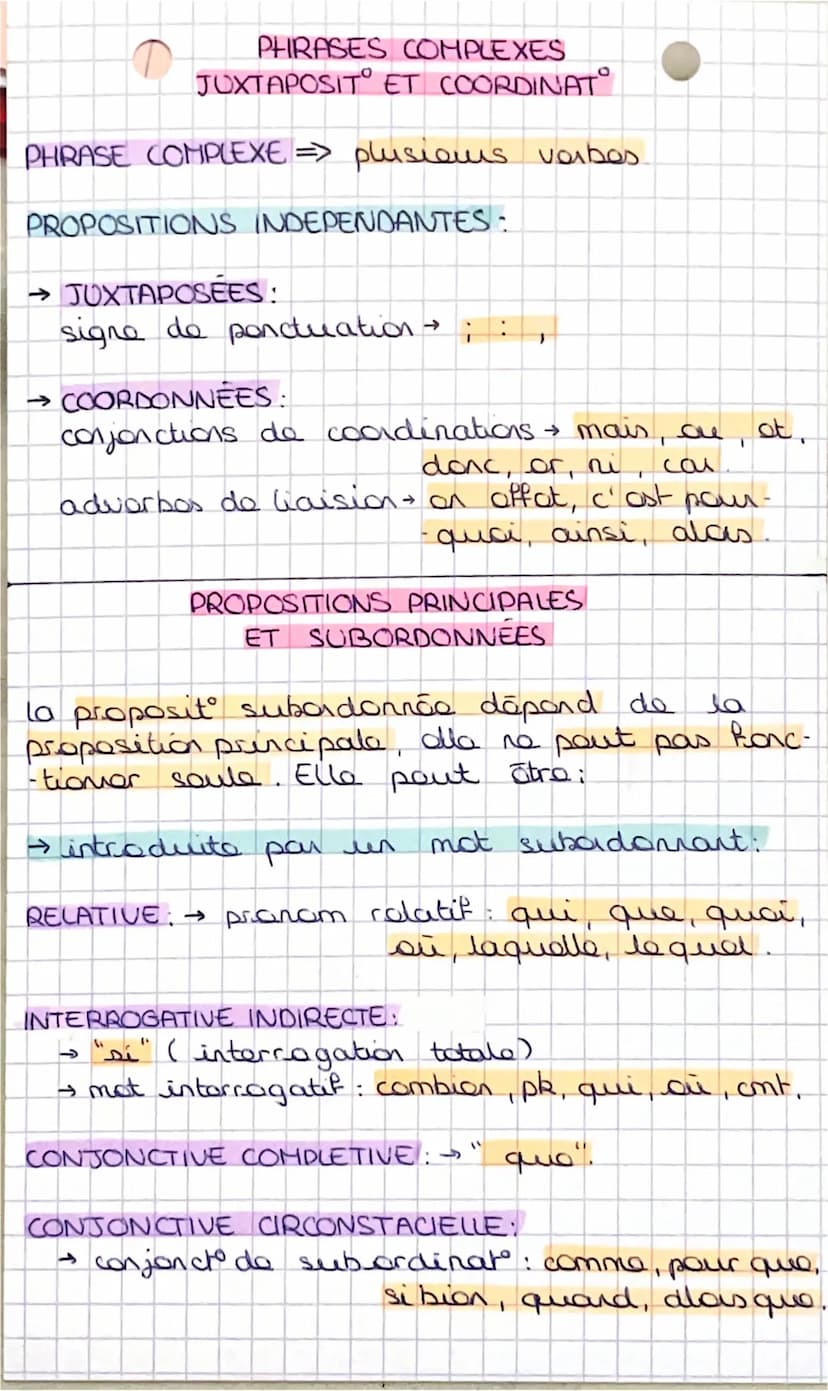 PHRASES COMPLEXES
JUXTAPOSIT° ET COORDINAT°
PHRASE COMPLEXE => plusieurs verbes
PROPOSITIONS INDEPENDANTES :
→ JUXTAPOSÉES :
signe de ponctuation → ; : ,
→ COORDONNÉES :
conjonctions de coordinations → mais, ou, et,
donc, or, ni, car.
adverbes de liaision → en effet, c'est pour-
-quoi, ainsi, alors.
PROPOSITIONS PRINCIPALES
ET SUBORDONNÉES
la proposit° subordonnée dépend de la
proposition principale, elle ne peut pas fonc-
-tionner seule. Elle peut être :
→ introduite par un mot subordonnant :
RELATIVE : → pronom relatif : qui, que, quoi,
où, laquelle, lequel.
INTERROGATIVE INDIRECTE :
→ "si" ( interrogation totale)
→ mot interrogatif : combien, pk, qui, où, cmt.
CONJONCTIVE COMPLETIVE : → " que".
CONJONCTIVE CIRCONSTACIELLE :
→ conjonct° de subordinat° : comme, pour que,
si bien, quand, alors que.